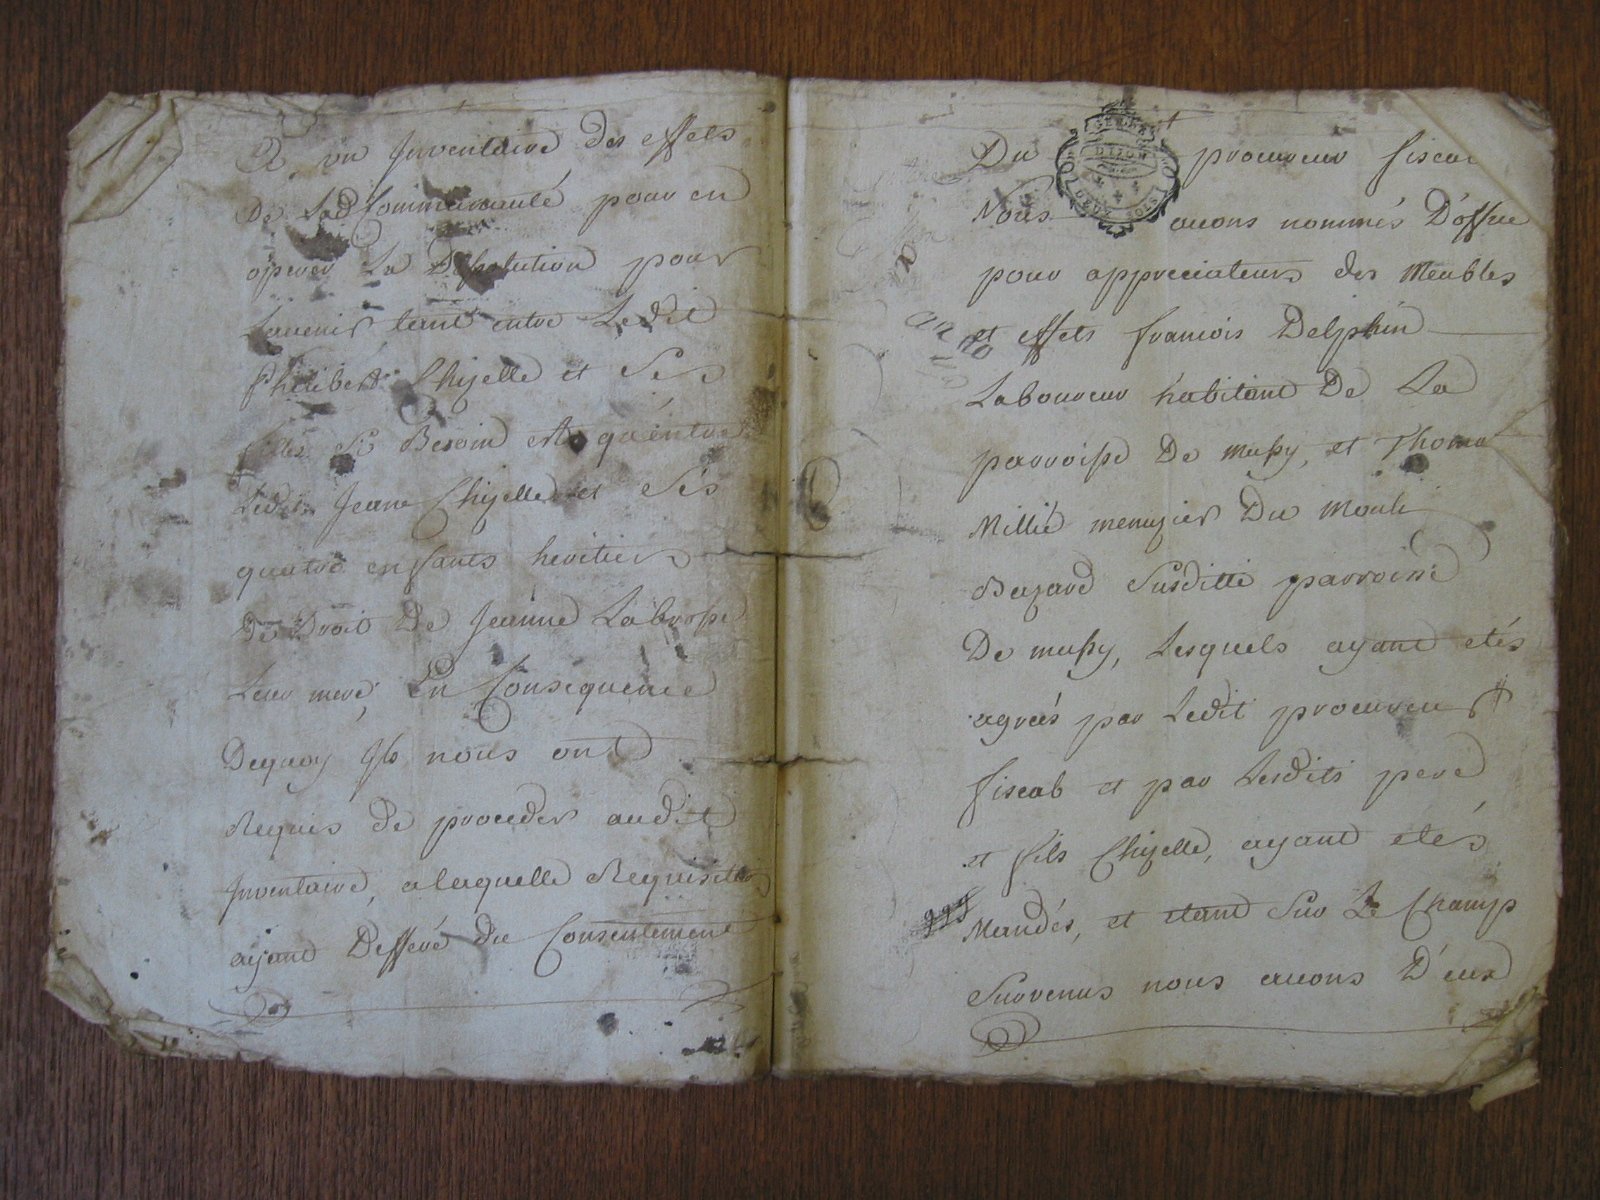 a un Inventaire des effets
De Lad Communauté pour en
operer La Dissolution pour
Lavenir tant entre Ledit
Philibert Chizelle et Ses
filles Si Besoin est qu'entre
Ledit Jean Chizelle et Sés
quatre enfants heritiers
De Droit De Jeanne Labrosse
Leur mere, En Consequence
Dequoy Ils nous ont
Requis de proceder audit
Inventaire, a laquelle Requisition
ayant Defferé du Consentement
Du procureur fiscal
GENER
DIJON
DEUX SOLS
Nous avons nommés D'office
pour appreciateurs des Meubles
et effets francois Delphin
Laboureur habitant De La
parroisse De mussy, et Thoma
Millié menuzier Du Mouli
Bazard Susditte parroisse
De mussy, Lesquels ayant etés
agreés par Ledit procureur
fiscal et par Lesdits pere
et fils Chizelle, ayant etés
Mandés, et etant Sur Le Champ
Survenus nous avons D'eux